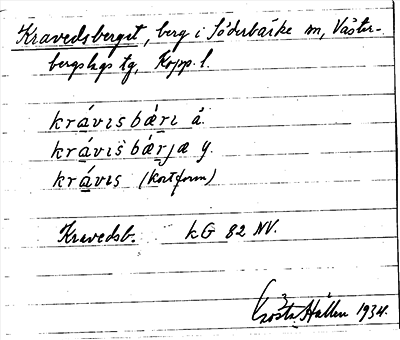 Kravedsberget, berg i Söderbärke sn, Väster-
bergslags tg, Kopp. l.
krávisbǽri ä.
krávisbǽrjæ y.
krávis (kortform)
Kravedsb. kG 82 NV.
Gösta Hallén 1934.